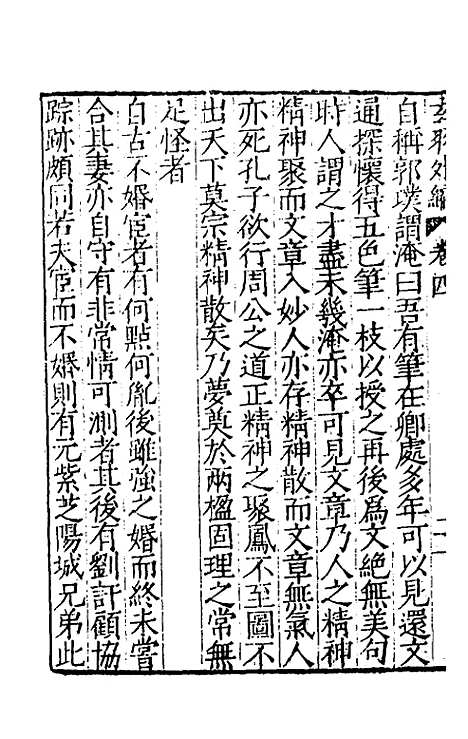 卷四
自稱郭璞謂淹曰吾有筆在卿處多年可以見還文
通探懷得五色筆一枝以授之再後爲文絕無美句
時人謂之才盡未幾淹亦卒可見文章乃人之精神
精神聚而文章入妙人亦存精神散而文章無氣人
亦死孔子欲行周公之道正精神之聚鳳不至圖不
出天下莫宗精神散矣乃夢奠於兩楹固理之常無
足怪者
自古不婚宦者有何點何胤後雖強之婚而終未嘗
合其妻亦自守有非常情可測者其後有劉訏顧協
踪跡頗同若夫宦而不婚則有元紫芝陽城兄弟此